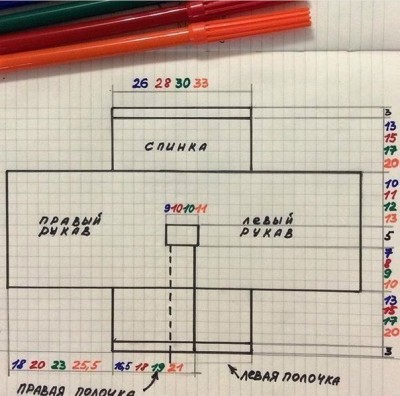 26 28 30 33
3
СПИНКА
13
15
17
20
10
11
12
13
9 10 10 11
ПРАВЫЙ
РУКАВ
ЛЕВЫЙ
РУКАВ
5
7
8
9
10
13
15
17
20
3
18 20 23 25,5
16,5 18 19 21
ПРАВАЯ ПОЛОЧКА
ЛЕВАЯ ПОЛОЧКА